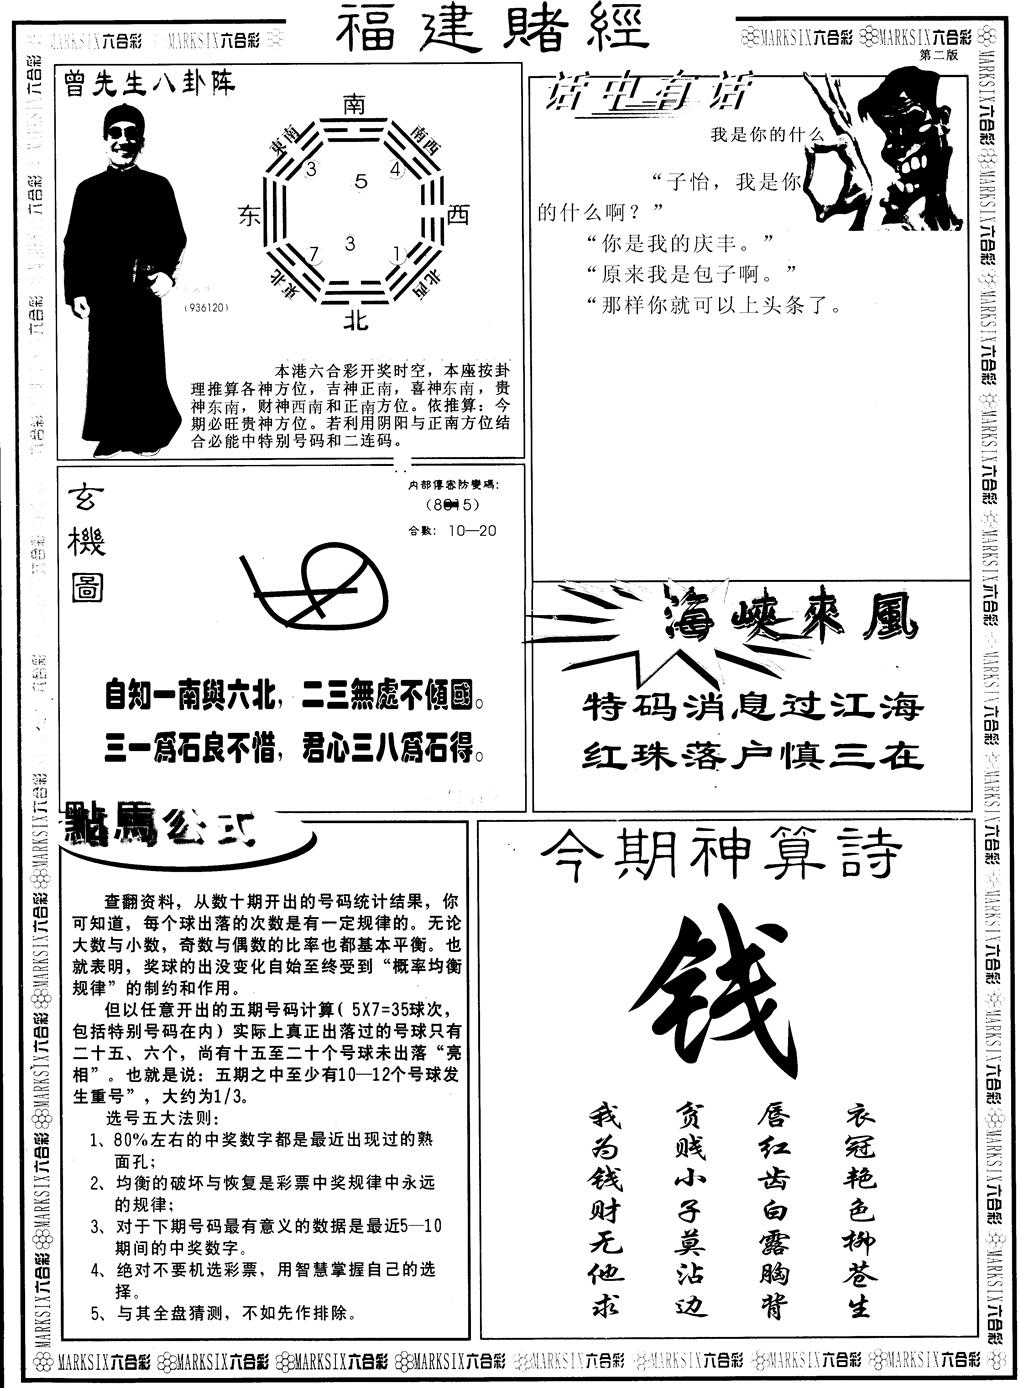 福建賭經
MARKSIX六合彩 MARKSIX六合彩
MARKSIX六合彩 MARKSIX六合彩
第二版
曾先生八卦阵
南
東南
南西
3
4
5
东
西
3
7
1
東北
北西
北
(936120)
本港六合彩开奖时空，本座按卦
理推算各神方位，吉神正南，喜神东南，贵
神东南，财神西南和正南方位。依推算：今
期必旺贵神方位。若利用阴阳与正南方位结
合必能中特别号码和二连码。
话中有话
我是你的什么
“子怡，我是你
的什么啊？”
“你是我的庆丰。”
“原来我是包子啊。”
“那样你就可以上头条了。
玄機圖
内部傳密防變碼：
合數： 10—20
自知一南與六北，二三無處不傾國。
三一爲石良不惜，君心三八爲石得。
海峽來風
特码消息过江海
红珠落户慎三在
點馬公式
查翻资料，从数十期开出的号码统计结果，你
可知道，每个球出落的次数是有一定规律的。无论
大数与小数，奇数与偶数的比率也都基本平衡。也
就表明，奖球的出没变化自始至终受到“概率均衡
规律”的制约和作用。
但以任意开出的五期号码计算( 5X7=35球次，
包括特别号码在内）实际上真正出落过的号球只有
二十五、六个，尚有十五至二十个号球未出落“亮
相”。也就是说：五期之中至少有10—12个号球发
生重号”，大约为1/3。
选号五大法则：
1、80%左右的中奖数字都是最近出现过的熟
面孔；
2、均衡的破坏与恢复是彩票中奖规律中永远
的规律；
3、对于下期号码最有意义的数据是最近5—10
期间的中奖数字。
4、绝对不要机选彩票，用智慧掌握自己的选
择。
5、与其全盘猜测，不如先作排除。
今期神算詩
钱
衣冠艳色柳苍生
唇红齿白露胸背
贫贱小子莫沾边
我为钱财无他求
MARKSIX六合彩 MARKSIX六合彩 MARKSIX六合彩 MARKSIX六合彩 MARKSIX六合彩 MARKSIX六合彩 MARKSIX六合彩 MARKSIX六合彩